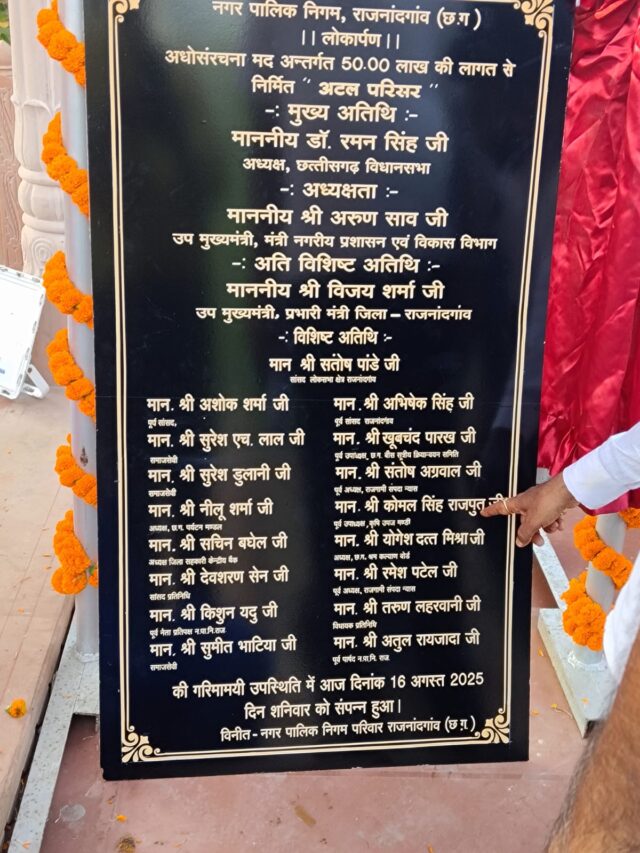 नगर पालिक निगम, राजनांदगांव (छ.ग )
|| लोकार्पण ||
अधोसंरचना मद अन्तर्गत 50.00 लाख की लागत से
निर्मित " अटल परिसर "
-: मुख्य अतिथि :-
माननीय डॉ. रमन सिंह जी
अध्यक्ष, छत्तीसगढ़ विधानसभा
-: अध्यक्षता :-
माननीय श्री अरुण साव जी
उप मुख्यमंत्री, मंत्री नगरीय प्रशासन एवं विकास विभाग
-: अति विशिष्ट अतिथि :-
माननीय श्री विजय शर्मा जी
उप मुख्यमंत्री, प्रभारी मंत्री जिला – राजनांदगांव
-: विशिष्ट अतिथि :-
मान श्री संतोष पांडे जी
सांसद लोकसभा क्षेत्र राजनांदगांव
मान. श्री अशोक शर्मा जी
पूर्व सांसद,
मान. श्री सुरेश एच. लाल जी
समाजसेवी
मान. श्री सुरेश डुलानी जी
समाजसेवी
मान. श्री नीलू शर्मा जी
अध्यक्ष, छ.ग. पर्यटन मण्डल
मान. श्री सचिन बघेल जी
अध्यक्ष जिला सहकारी केन्द्रीय बैंक
मान. श्री देवशरण सेन जी
सांसद प्रतिनिधि
मान. श्री किशुन यदु जी
पूर्व नेता प्रतिपक्ष न.पा.नि.राज.
मान. श्री सुमीत भाटिया जी
समाजसेवी
मान. श्री अभिषेक सिंह जी
पूर्व सांसद राजनांदगांव
मान. श्री खूबचंद पारख जी
पूर्व उपाध्यक्ष, छ.ग. बीस सूत्रीय क्रियान्वयन समिति
मान. श्री संतोष अग्रवाल जी
पूर्व अध्यक्ष, राजगामी संपदा न्यास
मान. श्री कोमल सिंह राजपुत जी
पूर्व उपाध्यक्ष, कृषि उपज मण्डी
मान. श्री योगेश दत्त मिश्रा जी
अध्यक्ष, छ.ग. श्रम कल्याण बोर्ड
मान. श्री रमेश पटेल जी
पूर्व अध्यक्ष, राजगामी संपदा न्यास
मान. श्री तरुण लहरवानी जी
विधायक प्रतिनिधि
मान. श्री अतुल रायजादा जी
पूर्व पार्षद न.पा.नि. राज.
की गरिमामयी उपस्थिति में आज दिनांक 16 अगस्त 2025
दिन शनिवार को संपन्न हुआ |
विनीत - नगर पालिक निगम परिवार राजनांदगांव (छ.ग.)